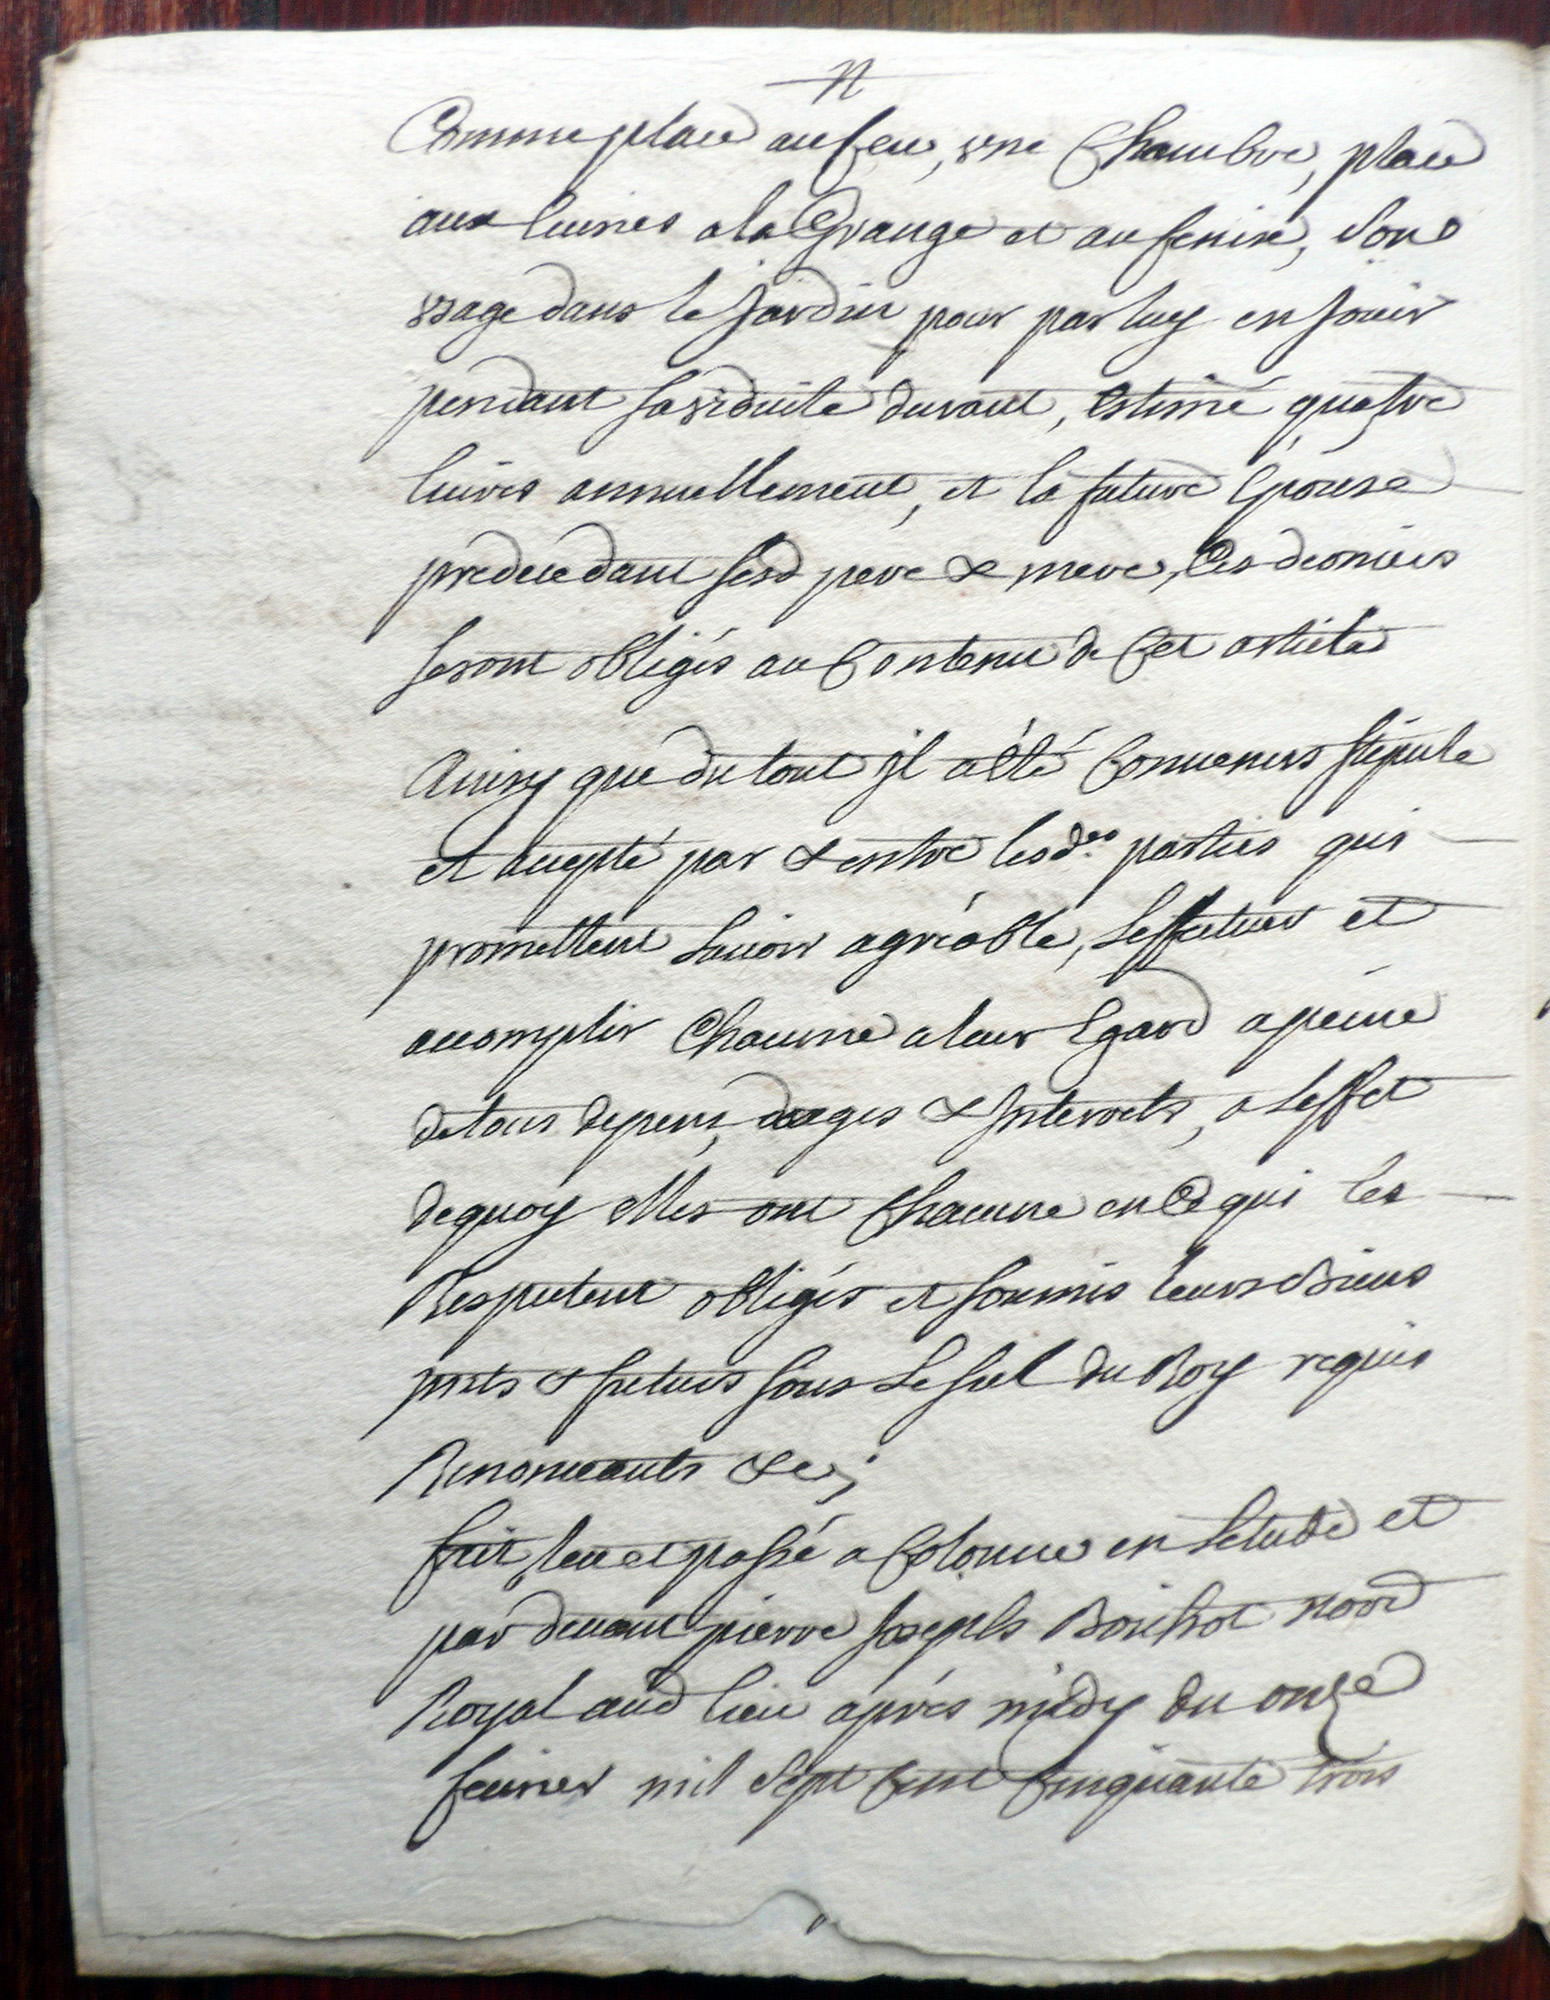 n
Comme place au feu, une Chambre, place
aux luines a la Grange et au fenire, Son
usage dans le Jardin pour par luy en Jouir
pendant sa viduité durant, Estimé quatre
livres annuellement, et la future Epouse
predecedant sesd pere & mere, Ces derniers
seront obligés au Contenu de Cet article
Ainsy que du tout jl a été Convenus stipule
et accepté par & entre lesd.es parties qui
promettent Lavoir agréable, Leffectuer et
accomplir Chacune a leur Egard a peine
de tous depens, doages & Interests, a Leffet
de quoy elles ont Chacune en Ce qui les
Respectent obligés et soumis leurs Biens
pnts & futurs sous Le sçel du Roy requis
Renonceants &c;
fait, leu et passé a Colonne en Letude et
par devant pierre Joseph Bouchot nore
Royal aud lieu aprés midy du onze
fevrier mil Sept Cent Cinquante trois